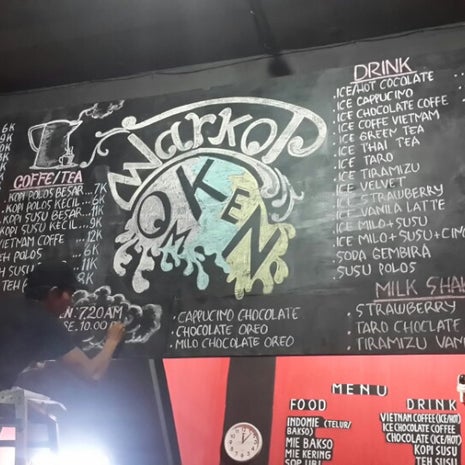 6K
9K
COFFE/TEA
KOPI POLOS BESAR...7K
KOPI POLOS KECIL...6K
KOPI SUSU BESAR...11K
KOPI SUSU KECIL...9K
VIETNAM COFFE ...12K
TEH POLOS ...6K
TEH SUSU
TEH
Warkop
OM KEN
7.20 AM
10.00
. CAPPUCINO CHOCOLATE
. CHOCOLATE OREO
. MILO CHOCOLATE OREO
DRINK
. ICE/HOT COCOLATE
. ICE CAPPUCINO
. ICE CHOCOLATE COFFE
. ICE COFFE VIETNAM
. ICE GREEN TEA
. ICE THAI TEA
. ICE TARO
. ICE TIRAMIZU
. ICE VELVET
. ICE STRAWBERRY
. ICE VANILA LATTE
. ICE MILO+SUSU
. ICE MILO+SUSU+CIN
. SODA GEMBIRA
. SUSU POLOS
MILK SHA
. STRAWBERRY
. TARO CHOCLATE
. TIRAMIZU VAN
MENU
FOOD
INDOMIE (TELUR/
BAKSO)
MIE BAKSO
MIE KERING
SOP UBI
DRINK
VIETNAM COFFEE (ICE/HOT)
ICE CHOCOLATE COFFEE
CHOCOLATE (ICE/HOT)
KOPI SUSU
TEH SUSU